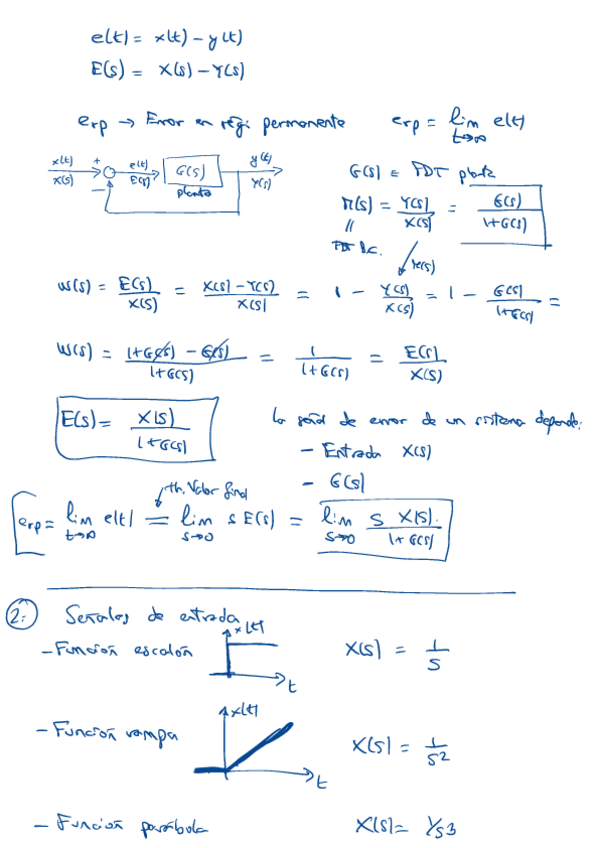 e(t) = x(t) - y(t)
E(s) = X(s) - Y(s)
erp → Error en régi permanente erp = lim t→∞ e(t)
x(t) X(s) + - e(t) E(s) G(s) planta y(t) Y(s)
G(s) = FDT planta
M(s) = Y(s)/X(s) = G(s)/(1+G(s))
" FDT B.C. M(s)
W(s) = E(s)/X(s) = (X(s) - Y(s))/X(s) = 1 - Y(s)/X(s) = 1 - G(s)/(1+G(s)) =
W(s) = (1+G(s) - G(s))/(1+G(s)) = 1/(1+G(s)) = E(s)/X(s)
E(s) = X(s)/(1+G(s))
La señal de error de un sistema depende:
- Entrada X(s)
- G(s)
th. Valor final
erp = lim t→∞ e(t) = lim s→0 s E(s) = lim s→0 s X(s)/(1+G(s))
2: Señales de entrada
- Función escalón x(t) t X(s) = 1/s
- Función rampa x(t) t X(s) = 1/s²
- Función parábola X(s) = 1/s3